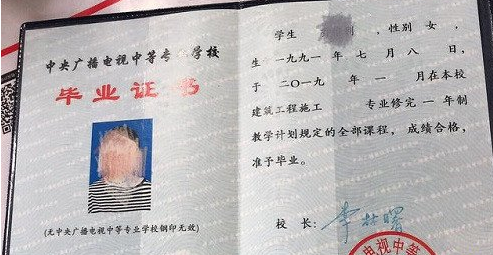 中央广播电视中等专 学校
毕业证书
(无中央广播电视中等专业学校钢印无效)
学生 ,性别 女,
生一九九一年 七 月 八 日,
于 二〇一九 年 一 月在本校
建筑工程施工 专业修完 一 年制
教学计划规定的全部课程,成绩合格,
准予毕业。
校 长:
电视中等